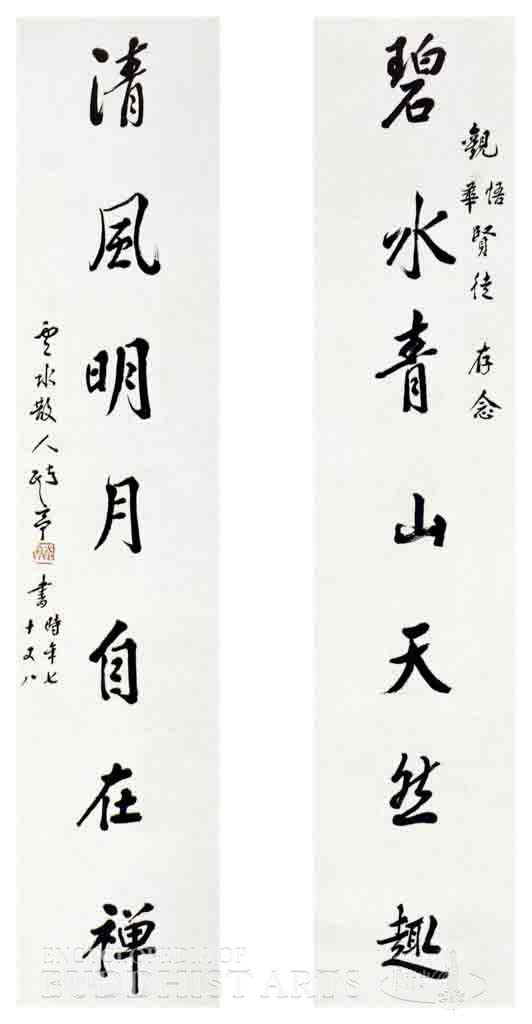 碧水青山天然趣
觀悟華賢徒 存念
清風明月自在禅
雲水散人
亭
書時年七十又八
OF
BUDDHIST ARTS